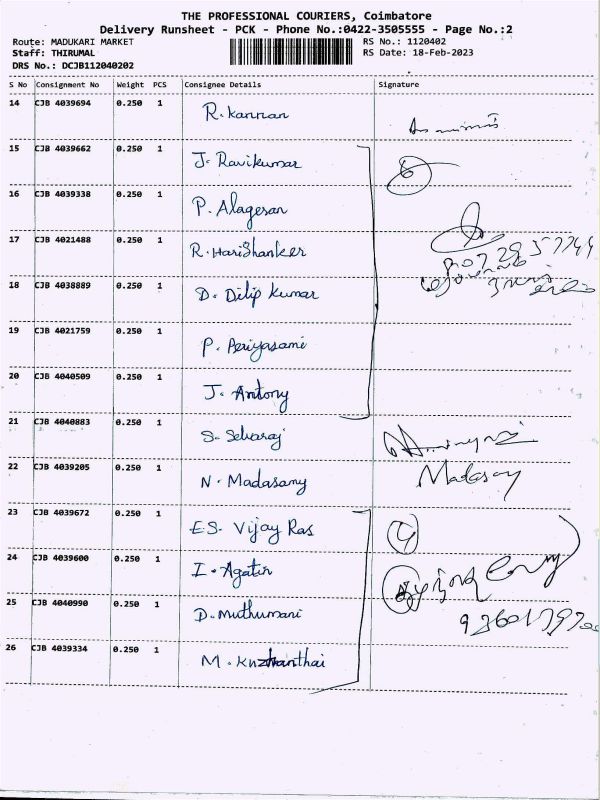 THE PROFESSIONAL COURIERS, Coimbatore
Delivery Runsheet - PCK - Phone No.:0422-3505555 - Page No.:2
Route: MADUKARI MARKET
RS No.: 1120402
Staff: THIRUMAL
RS Date: 18-Feb-2023
DRS No.: DCJB112040202
S No Consignment No Weight PCS Consignee Details Signature
14 CJB 4039694 0.250 1 R. Kannan
15 CJB 4039662 0.250 1 J. Ravikumar 6
16 CJB 4039338 0.250 1 P. Alagesan
17 CJB 4021488 0.250 1 R. Harishanker
18 CJB 4038889 0.250 1 D. Dilip Kumar
19 CJB 4021759 0.250 1 P. Periyasami
20 CJB 4040509 0.250 1 J. Antony
21 CJB 4040883 0.250 1 S. Selvaraj
22 CJB 4039205 0.250 1 N. Madasamy Madasamy
23 CJB 4039672 0.250 1 E.S. Vijay Ras 4
24 CJB 4039600 0.250 1 I. Agatin
25 CJB 4040990 0.250 1 D. Muthumani
26 CJB 4039334 0.250 1 M. Kuzhanthai